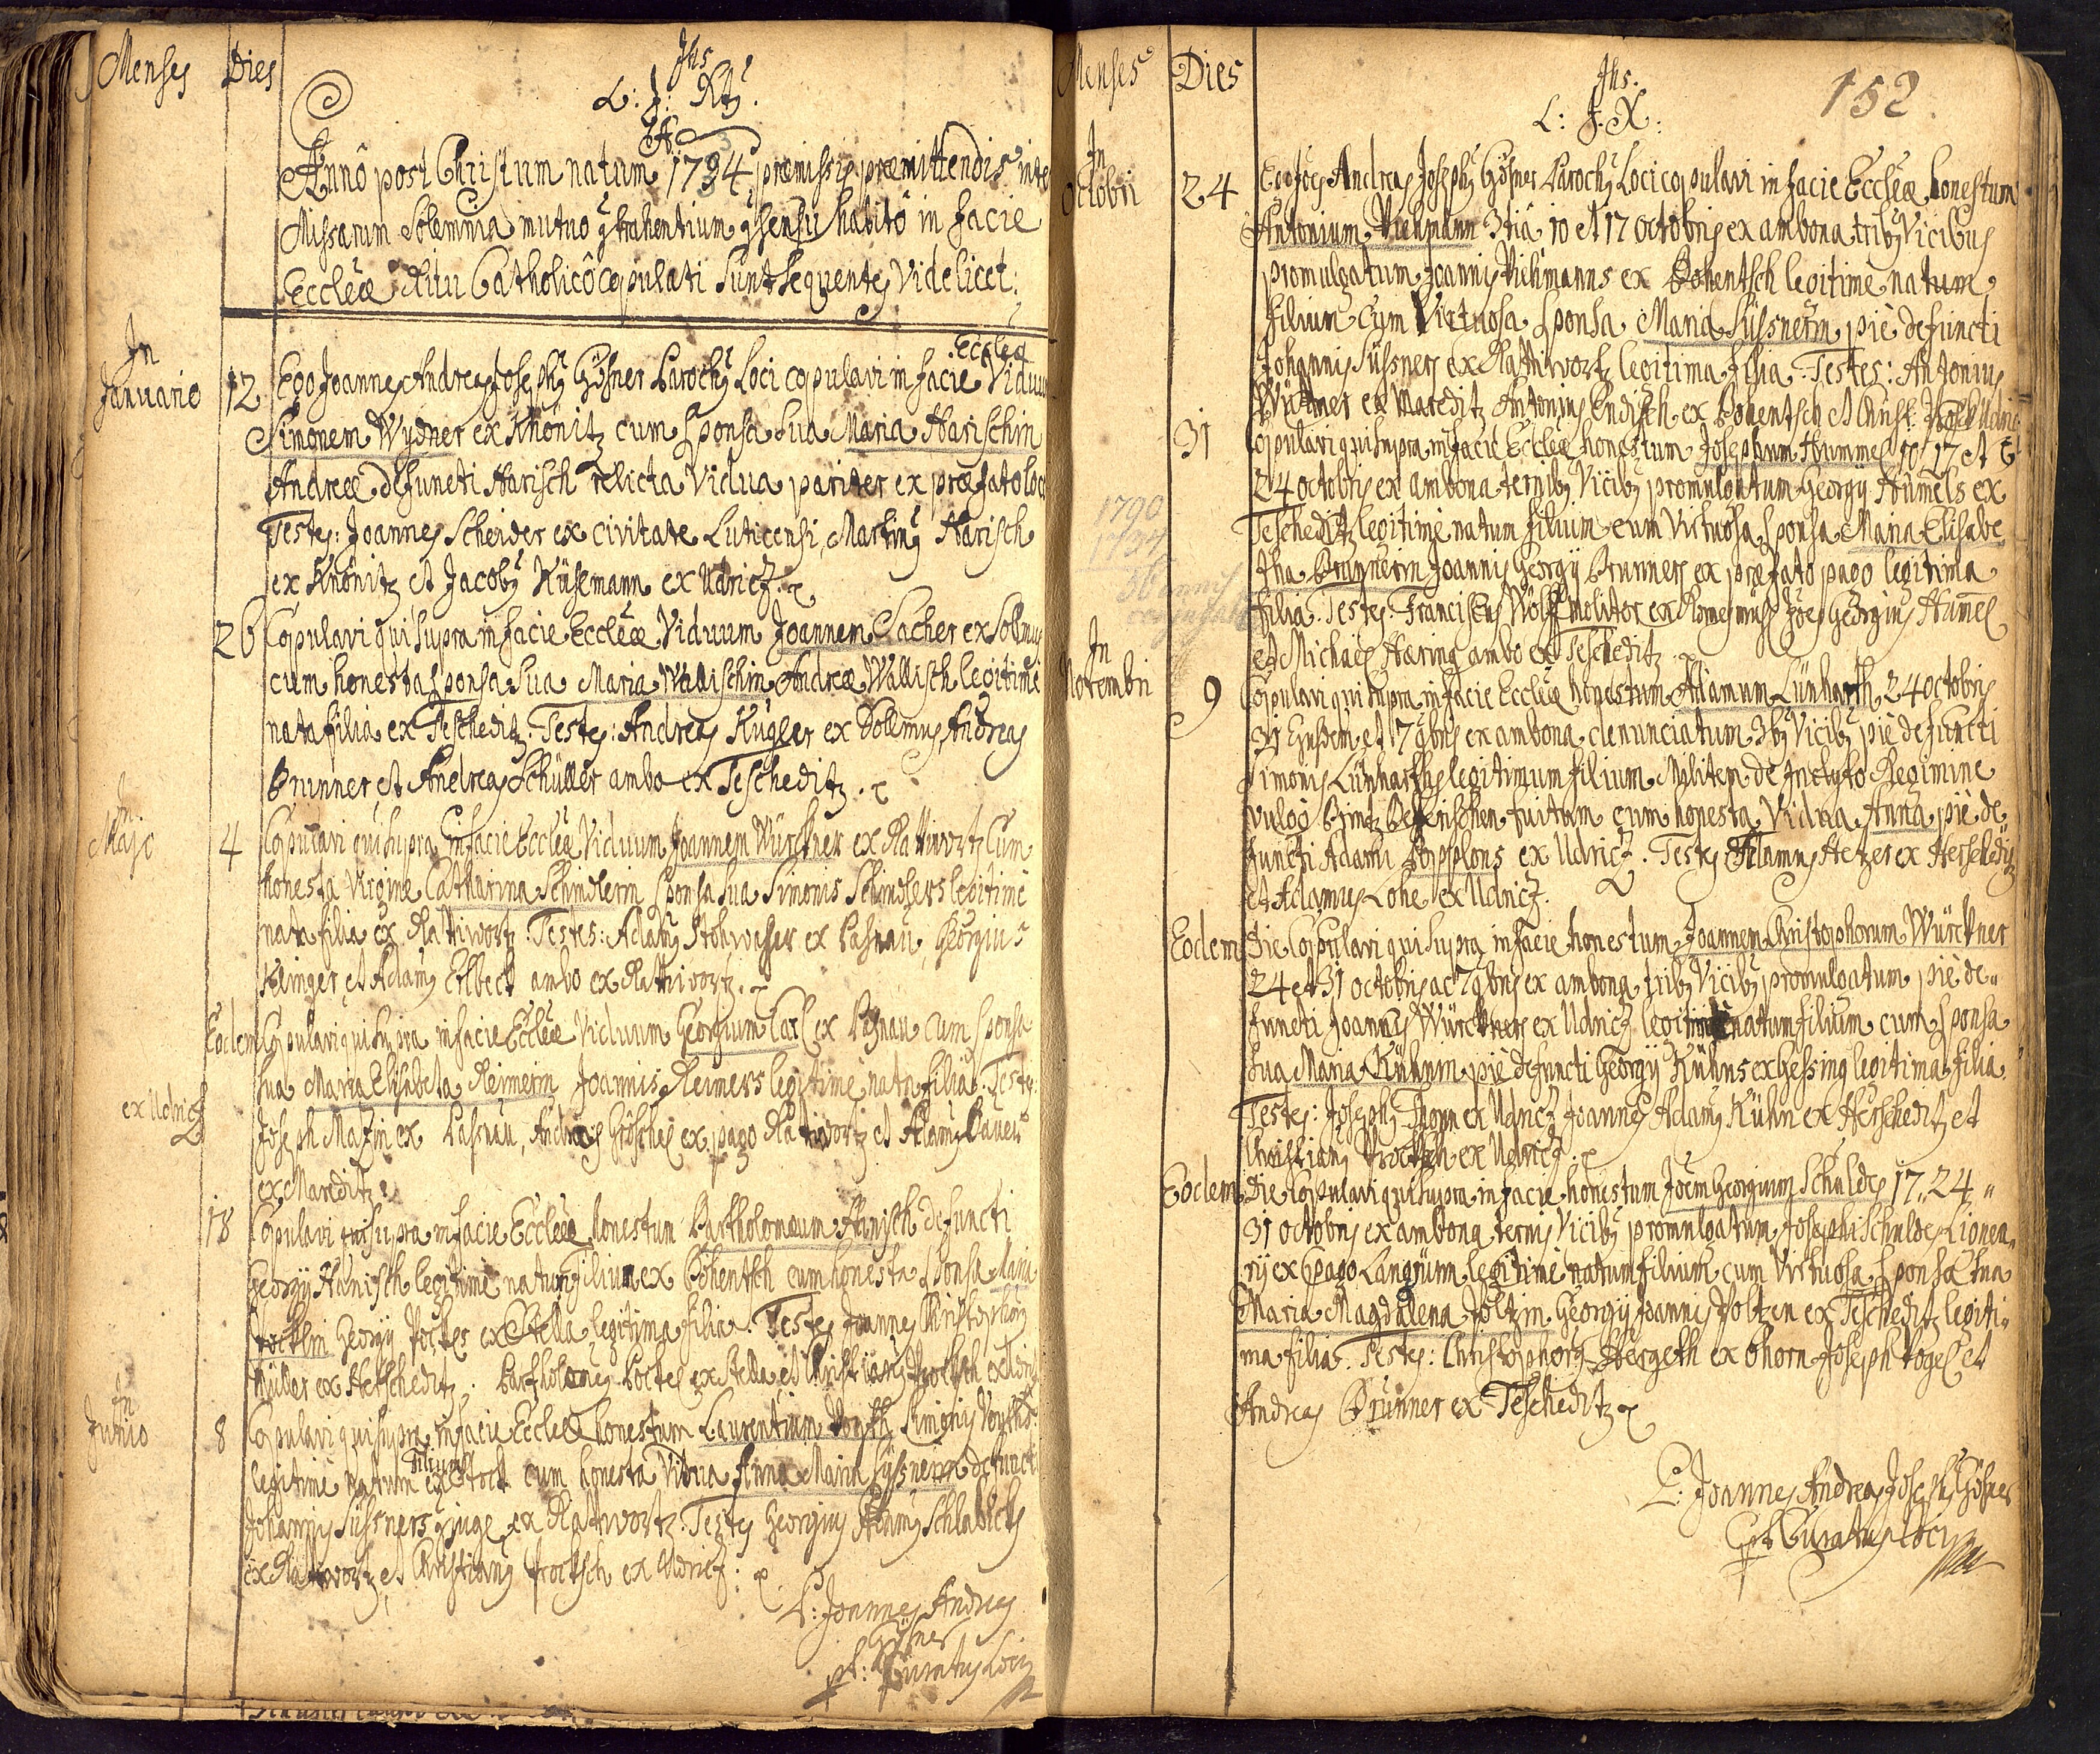 Menses Dies
Jhs
L: J: Xt9.
Annô post Christum natum 1734, præmissis præmittendis inter
Missarum Solemnia mutuo 9trahentium 9sensu habitô in facie
Eccleæ Ritu Catholicô copulati sunt sequentes Videlicet:
In
Januario
12 Ego Joannes Andreas Joseph9 Gößner Paroch9 Loci copulavi in facie Eccleæ Viduum
Simonem Wydner ex Knönitz cum sponsa sua Maria Harischin
Andreæ defuncti Harisch relicta Vidua pariter ex præfato loco
Testes: Joannes Scheider ex civitate Luticensi, Martin9 Harisch
ex Knönitz et Jacob9 Küsemann ex Udricz.
26 Copulavi qui supra in facie Eccleæ Viduum Joannem Sacher ex Solmus
cum honesta sponsa sua Maria Wallischin Andreæ Wallisch legitime
nata filia ex Tescheditz. Testes: Andreas Kugler ex Dollmus, Andreas
Brunner et Andreas Schüller ambo ex Tescheditz.
In
Majo
4 Copulavi qui supra in facie Eccleæ Viduum Joannem Würckner ex Rattiwortz Cum
honesta Virgine Catharina Schindlerin sponsa sua Simonis Schindlers legitime
nata filia ex Rathiwortz. Testes: Adam9 Stohwasser ex Paßnau, Georgius
Klinger et Adam9 Erlbeck ambo ex Rattiwortz.
Eodem Copulavi qui supra in facie Eccleæ Viduum Georgium Carl ex Paßnau cum sponsa
sua Maria Elisabeta Reimerin Joannis Reimers legitime nata filia. Testes:
ex Udricz
Joseph Mazin ex Paßnau, Andreas Größhel ex pago Rattiwortz et Adam9 Bauer
ex Mareditz.
18 Copulavi qui supra in facie Eccleæ honestum Bartholomæum Hanisch defuncti
Georgÿ Hanisch legitime natum filium ex Pohentsch cum honesta sponsa Maria
Pocklin Georgÿ Pockes ex Stella legitima filia. Testes Joannes Christophor9
Müller ex Herscheditz. Bartholome9 Pockes ex Stella et Christian9 Procksch ex Udricz
In
Junio
8 Copulavi qui supra in facie Eccleæ honestum Laurentium Voyth Simonis Voyths
legitime natum filium ex Stock cum honesta Vidua Anna Maria Süssnerin defuncti
Johannis Süssners 9juge ex Rattiwortz. Testes Georgius Adam9 Schlabicks
ex Rattiwortz, et Christian9 Procksch ex Udricz:
P: Joannes Andreas
Gößner
pt: Curatus Loci
Menses Dies
Jhs.
L: J. X:
152
In
Octobri
24 Ego Joes Andreas Joseph9 Gößner Paroch9 Loci copulavi in facie Eccleæ honestum
Antonium Vichmann 3tia 10 et 17 octobris ex ambona trib9 Vicibus
promulgatum Joannis Vichmanns ex Pohentsch legitime natum
filium Cum Virtuosa sponsa Maria Süssnerin pie defuncti
Johannis Süssners ex Rattiwortz legitima filia. Testes: Antonius
Würthner ex Mareditz Antonius Endisch ex Pohentsch et Christ.
31 Copulavi qui supra in facie Eccleæ honestum Josephum Hummel 10 17 et
24 octobris ex ambona ternib9 Vicib9 promulgatum Georgÿ Hummels ex
Tescheditz legitime natum filium cum Virtuosa sponsa Maria Elisabe
1790
1734
56 annis
conjugati
tha Brunnerin Joannis Georgÿ Brunners ex præfato pago legitima
filia. Testes. Franciscus Wolff Molitor ex Joes Georgius Humel
et Michael Haring ambo ex Tescheditz.
In
Novembri
9 Copulavi qui supra in facie Eccleæ honestum Adamum Lünharth 24 octobris
31 Ejusdem et 7 9bris ex ambona denunciatum 3b9 Vicib9 pie defuncti
Simonis Lünharths legitimum filium Militem de Inclyto Regimine
vulgo Printz Beverischen fuitum cum honesta Vidua Anna pie de
functi Adami Popplons ex Udricz. Testes Adamus Hetzer ex Herscheditz
et Adamus Lohe ex Udricz.
Eodem Die Copulavi qui supra in facie honestum Joannem Christophorum Würckner
24 et 31 octobris ac 7 9bris ex ambona trib9 Vicib9 promulgatum pie de„
functi Joannis Würckners ex Udricz legitime natum filium cum sponsa
sua Maria Kühnin pie defuncti Georgÿ Kühns ex Gessing legitima filia.
Testes: Joseph9 Thoma ex Udricz Joannes Adam9 Kühn ex Herscheditz et
Christian9 Procksch ex Udricz.
Eodem Die Copulavi qui supra in facie honestum Joem Georgium Schuldes 17„ 24„
31 octobris ex ambona ternis Vicib9 promulgatum Josephi Schuldes Lignea„
rÿ ex pago Langgrün legitime natum filium cum Virtuosa sponsa sua
Maria Magdalena Poltzin Georgÿ Joannis Poltzen ex Tescheditz legiti„
ma filia. Testes: Christophor9 Hergeth ex Ohorn Joseph Vogel et
Andreas Brunner ex Tescheditz.
P. Joannes Andreas Joseph9 Gößner
pt Curatus loci